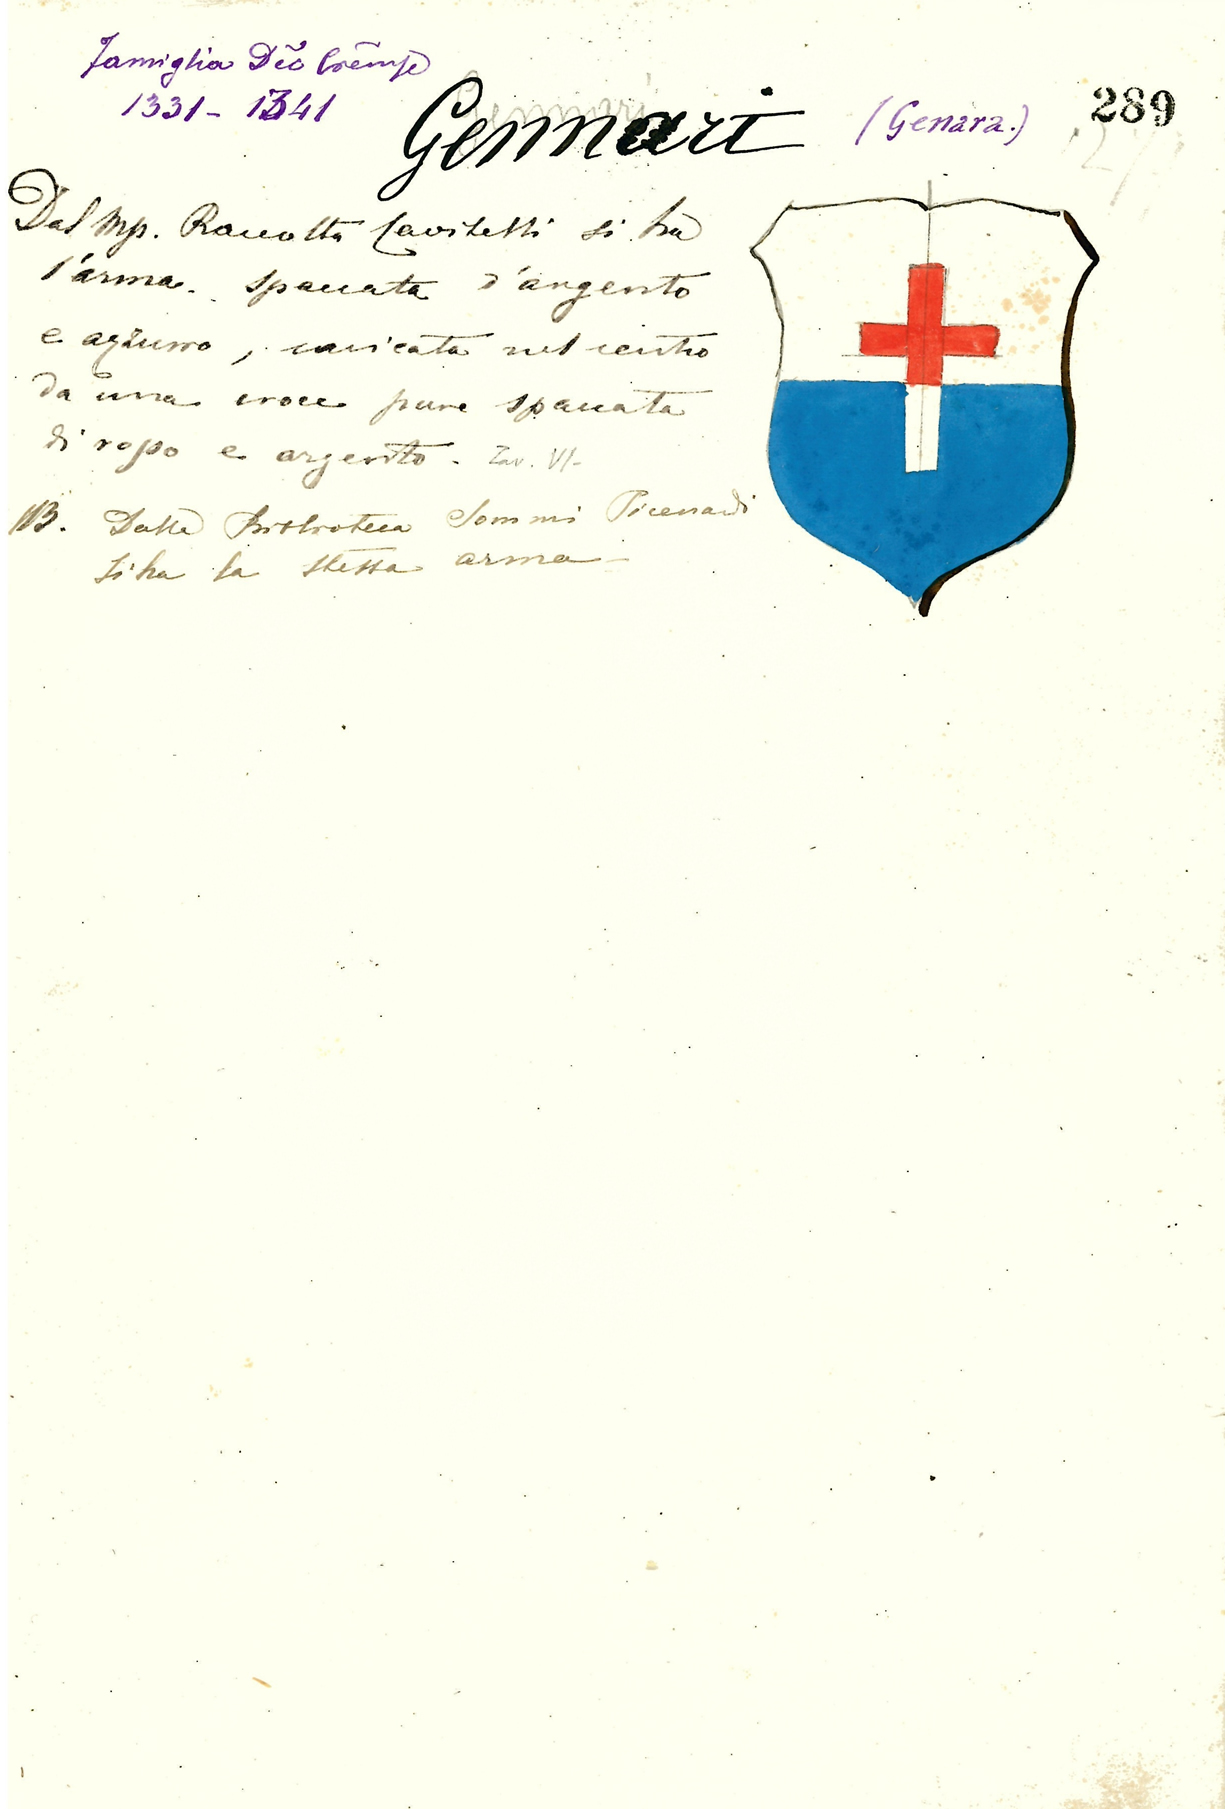 Famiglia Dec̃ Crem̃se
1331 - 1341
Gennari
(Genara.)
289
Dal Mss. Raccolta Cavitelli si ha
l'arma. spaccata d'argento
e azzurro, caricata nel centro
da una croce pure spaccata
di rosso e argento. Tav. VI-
NB. Dalla Biblioteca Sommi Picenardi
si ha la stessa arma -